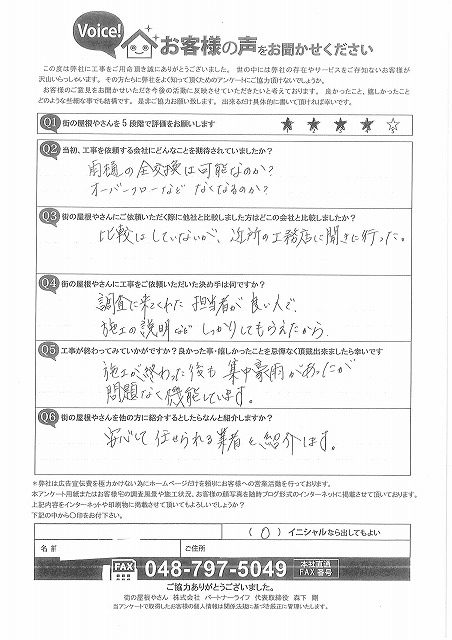 Voice!
お客様の声をお聞かせください
この度は弊社に工事をご用命頂き誠にありがとうございました。世の中には弊社の存在やサービスをご存知ないお客様が
沢山いらっしゃいます。その方たちに弊社をよく知って頂くためのアンケートにご協力頂けないでしょうか。
お客様のご意見をお聞かせいただき今後の活動に反映させていただきたいと考えております。良かったこと、嬉しかったこと
どのような些細な事でも結構です。是非ご協力お願い致します。出来るだけ具体的に書いて頂ければ幸いです。
Q1 街の屋根やさんを5段階で評価をお願いします ★ ★ ★ ★ ☆
Q2 当初、工事を依頼する会社にどんなことを期待されていましたか?
雨樋の全交換は可能なのか?
オーバーフローなど なくなるのか?
Q3 街の屋根やさんにご依頼いただく際に他社と比較しました方はどこの会社と比較しましたか?
比較はしていないが、近所の工務店に聞きに行った。
Q4 街の屋根やさんに工事をご依頼いただいた決め手は何ですか?
調査に来てくれた 担当者が 良い人で、
施工の説明など しっかりしてもらえたから
Q5 工事が終わってみていかがですか?良かった事・嬉しかったことを忌憚なく頂戴出来ましたら幸いです
施工が終わった後も 集中豪雨があったが
問題なく機能しています。
Q6 街の屋根やさんを他の方に紹介するとしたらなんと紹介しますか?
安心して任せられる業者と紹介します。
*弊社は広告宣伝費を極力かけない為にホームページだけを頼りにお客様への営業活動を行っております。
本アンケート用紙またはお客様宅の調査風景や施工状況、お客様の顔写真を随時ブログ形式のインターネットに掲載させて頂いております。
上記内容をインターネットや印刷物に掲載させて頂いてもよろしいでしょうか?
下記の中から○印をお付下さい。
( ○ ) イニシャルなら出してもよい
名前 ご住所
FAX 048-797-5049 本社直通 FAX番号
ご協力ありがとうございました。
街の屋根やさん 株式会社 パートナーライフ 代表取締役 森下 剛
当アンケートで取得したお客様の個人情報は関係法令に基づき厳正に管理いたします。